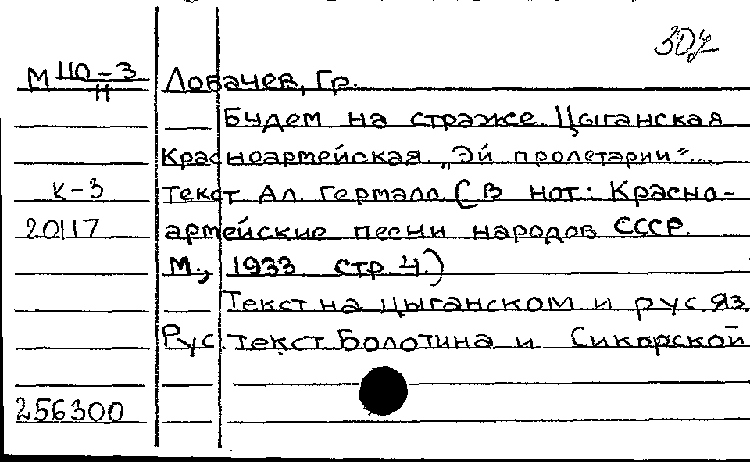 307
М Ц0-3 Ловачев, Гр.
11
Будем на страже. Цыганская
Красноармейская „Эй пролетарии"...
К-3 текст Ал. Германо (В нот: Красно-
20117 армейские песни народов СССР.
М., 1933 стр 4.)
Текст на цыганском и рус яз.
Рус текст Болотина и Сикорской
256300